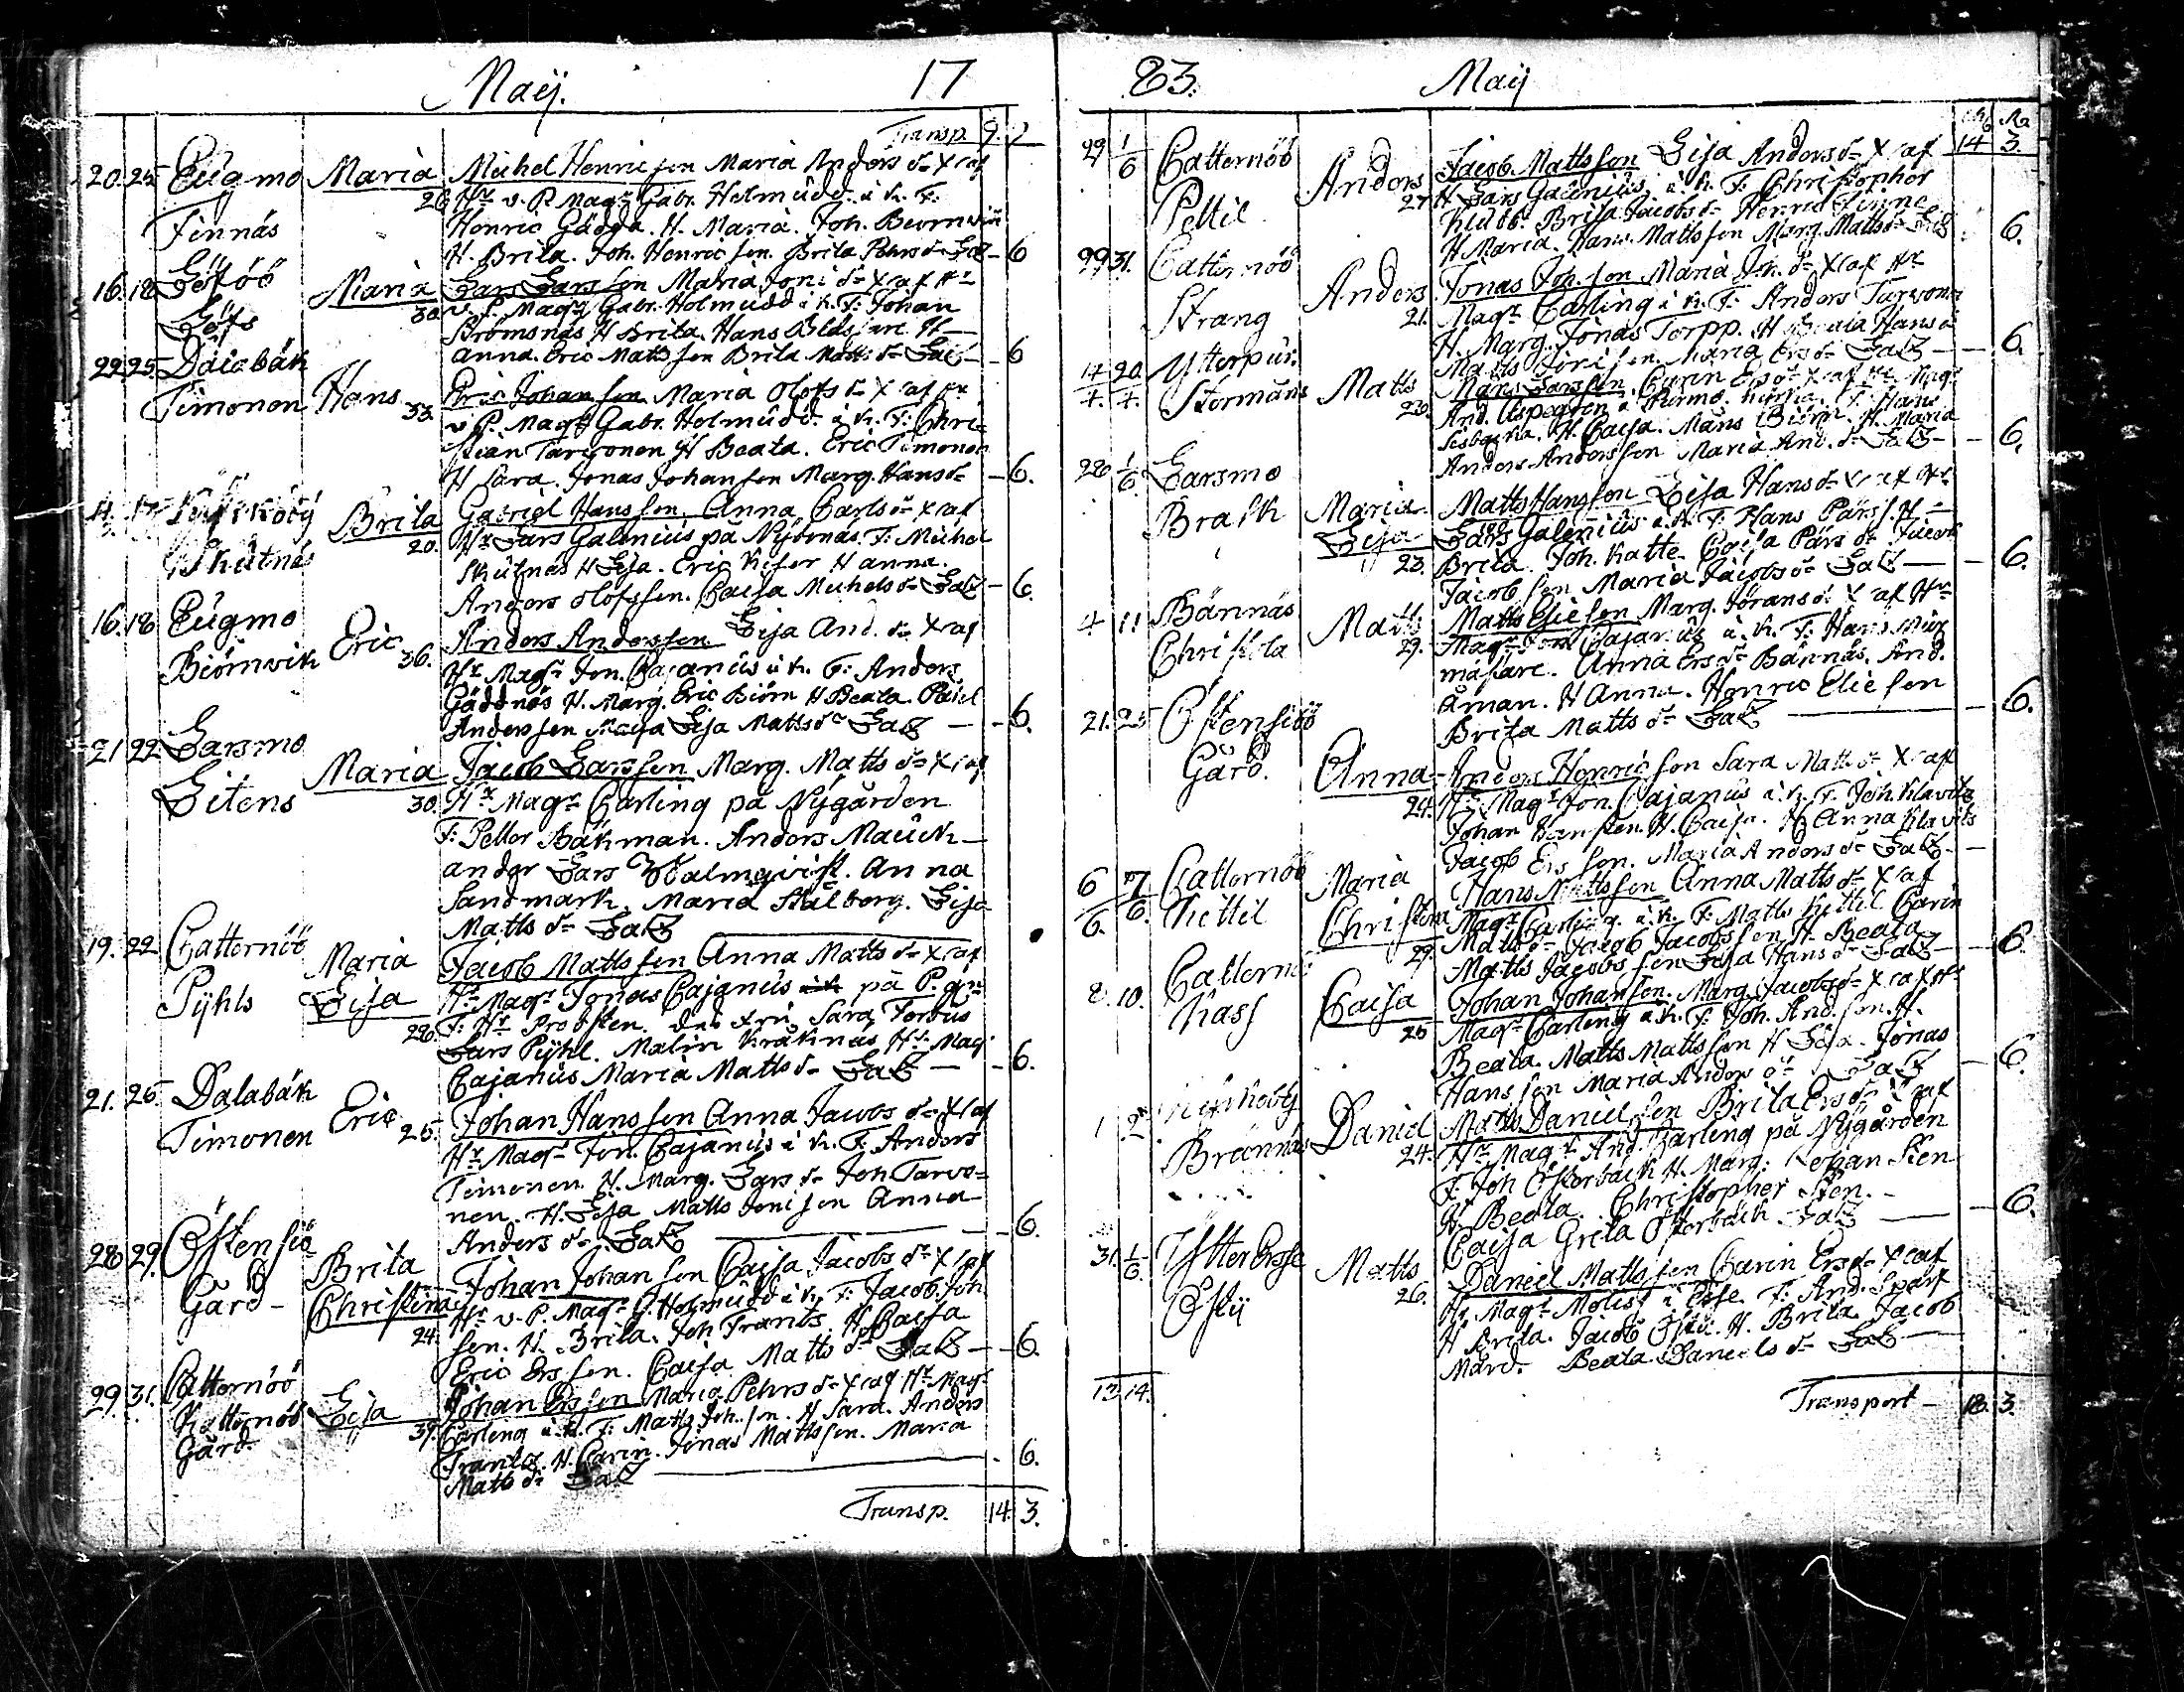 Maij. 17
Transp. 9. 2
20. 25 Eugmo Maria Michel Henricsson Maria Anders dr X af
26 Hr v. P. Magr Gabr. Holmudd. i k. F.
Finnäs Henric Gädda. H. Maria. Joh.
H. Brita. Joh. Henricsson. Brita Pehrs dr LaB - 6
16. 18 Maria Lars Larsson Maria Joni dr X af Hr
30. v. P. Magr Gabr. Holmudd i k. F. Johan
Strömsnäs H Brita. Hans Blåsjare. H
Anna. Eric Matsson Brita Matts dr LaB - 6
22. 25 Dalabäk
Timonen Hans 33. Eric Johansson Maria Olofs dr X af Hr
v P. Magr Gabr. Holmudd. i k. F. Chri-
stian Tarvonen H Beata. Eric Timonen
H Sara. Jonas Johansson Marg. Hans dr - 6.
Brita Gabriel Hansson Anna Carls dr X af
20. Hr Lars Galenius på Nybonäs. F. Michel
Skutnäs Skutnäs H Lisa. Eric Kiser H Anna.
Anders Olofsson. Caisa Michels dr LaB - 6.
16. 18 Eugmo Eric 36. Anders Andersson Lisa And. dr X af
Biörnvik Hr Magr Jon. Cajanus i k. F. Anders
Gäddnäs H. Marg. Eric Biörn H Beata. Påhl
Andersson Lisa Matts dr LaB - 6.
21 22 Larsmo
Eitens Maria Jacob Larsson Marg. Matts dr X af
30. Hr Magr Carling på Nygården
F: Petter Bäkman. Anders Mauck-
ander Lars Walmqvist. Anna
Sandmark. Maria Stålberg. Lisa
Matts dr LaB
19. 22 Catternöö Maria Jacob Mattsson Anna Matts dr X af
Pyhls Lisa Hr Magr Jonas Cajanus på P. gn
28. F: Hr Probsten. Sara Forbus
Lars Pyhl. Malin Kråknäs Hr Mag
Cajanus Maria Matts dr LaB - 6.
21. 25. Dalabäk Eric 25. Johan Hansson Anna Jacobs dr X af
Timonen Hr Magr Jon. Cajanus i k. F. Anders
Timonen. H. Marg. Lars dr Joh Tarvo-
nen. H. Lisa Matts Jonisson Anna
Anders dr LaB - 6.
28 29. Östensiö Brita Johan Johansson Caisa Jacobs dr X af
Gård Christina Hr v. P. Magr G. Holmudd i k. F. Jacob Joh
24. son. H. Brita. Joh Frants. H Caisa
Eric Ersson. Caisa Matts dr LaB - 6.
29. 31. Catternöö
Kattornöö Lisa Johan Ersson Maria Pehrs dr X af Hr Magr
Gård 39. Carling i k. F. Matts Joh. son. H Sara. Anders
Frants. H. Carin. Jonas Mattsson. Maria
Matts dr LaB - 6.
Transp. 14. 3.
83. Maij
14 3.
29 1/6 Catternöö Anders Jacob Mattsson Lisa Anders dr X af
Pettil 27. H Lars Galenius i k. F. Christopher
Klubb. Brita Jacobs dr Henric
H Maria. Hans Mattsson Marg. Matts dr LaB 6.
29 31. Catternöö Anders Jonas Joh. son Maria Joh. dr X af Hr
Strang 21. Magr Carling i k. F. Anders Tarvonen
H. Marg. Jonas Torpp. H Beata Hans dr
Matts Maria Ers dr LaB - 6.
14/4. 20/4. Ytterpur. Matts Larsson Carin Ers dr X af Hr Magr
Stormåns 23. And. Aspegren i Purmo. F. Hans
H. Caisa. Måns Biörn. H. Maria
Anders Andersson Maria And. dr LaB - 6.
28 1/6 Larsmo
Brask Maria Matts Hansson Lisa Hans dr X af Hr
Lisa Lars Galenius i k. F. Hans Pärs. H
23. Brita. Joh. Katte. Caisa Pärs dr Jacob
Jacobsson. Maria Jacobs dr LaB - 6.
4 11 Bännäs Matts Matts Eliesson Marg. Jörans dr X af Hr
Christola 29. Magr Jon Cajanus i k. F. Hans Mur
mästare. Anna Ers dr Bännäs. And.
Åman. H Anna. Henric Eliesson
Brita Matts dr LaB - 6.
21. 25 Östensiöö
Gård. Anna Anders Henricsson Sara Matts dr X af
24. Hr Magr Jon. Cajanus i k. F. Joh. Klavits
Johan Hansson. H. Caisa. H Anna Klavits
Jacob Ersson. Maria Anders dr LaB.
6/6. 7/6. Catternöö Maria Hans Mattsson Anna Matts dr X af
Kettil Christina Magr Carling. i k. F. Matts Kettil Carin
29. Matts dr Jacob Jacobsson H. Beata
Matts Jacobsson Lisa Hans dr LaB - 6.
8. 10. Catternö Caisa Johan Johansson. Marg. Jacobs dr X af Hr
Kass 25 Magr Carling i k. F. Joh. And. son. H.
Beata. Matts Mattsson H Lisa. Jonas
Hansson Maria Anders dr LaB - 6.
1 2 Daniel Matts Danielsson Brita Ers dr X af
Brännäs 24. Hr Magr And. Carling på Nygården
F. Joh Österbäck H. Marg. Johan Sten
H Beata. Christopher Sten.
Caisa Greta Österbäck. LaB - 6.
31. 1/6. Ytter Esse Matts Daniel Mattsson Carin Ers dr X af
Östij 26. Hr Magr Molis i Esse. F. And. Sparf
H Brita. Jacob H. Brita Jacob
Mård. Beata Daniels dr LaB
13. 14. Transport - 18. 3.